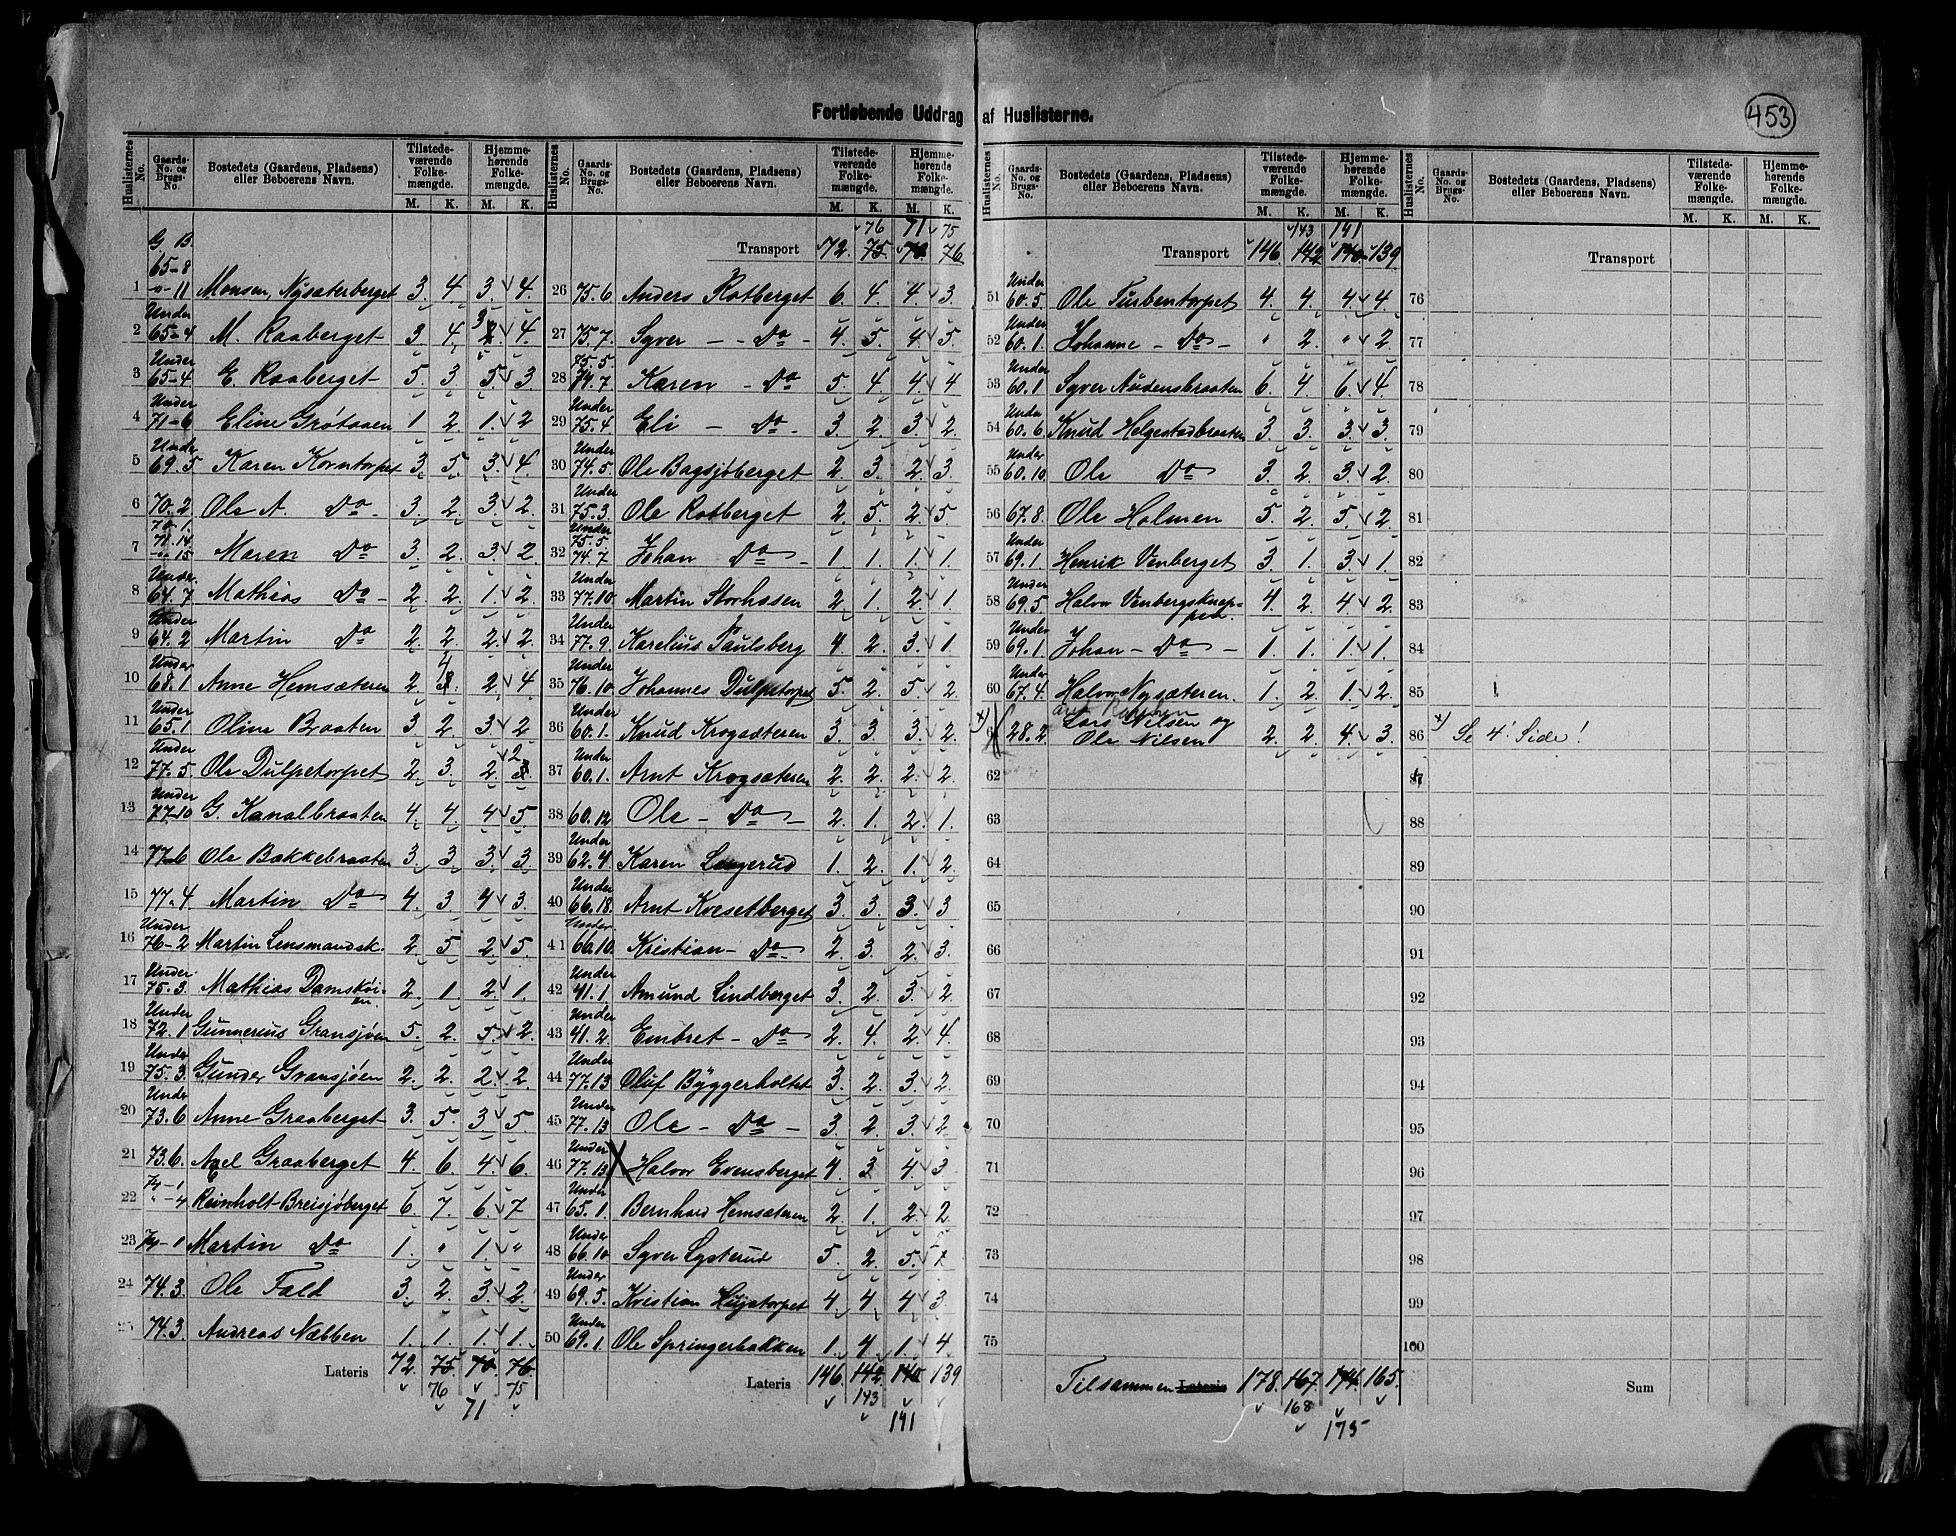 453
Fortløbende Uddrag af Huslisterne.
Huslisternes No. | Gaards-No. og Brugs-No. | Bostedets (Gaardens, Pladsens) eller Beboerens Navn. | Tilstedeværende Folkemængde. M. K. | Hjemmehørende Folkemængde. M. K.
G. B.
65-8
1 " 11 Monsen, Nysæterberget 3. 4. 3. 4.
2 Under 65-4 M. Raaberget 3. 4. 3 4.
3 Under 65-4 E. Raaberget 5. 3 5. 3
4 Under 71-6 Eline Grøtaaen 1 2. 1. 2
5 Under 69.5 Karen Korntorpet 3. 5. 3. 4.
6 70.2 Ole A. Do 3. 2. 3. 2.
7 70.1. 71.14 " 15 Maren Do 3. 2. 3. 2.
8 Under 64.7 Mathias Do 2. 2. 1. 2.
9 Under 64.2 Martin Do 2. 2. 2. 2.
10 Under 68.1 Anne Hemsæteren 2. 4 2. 4.
11 Under 65.1 Oline Braaten 3. 2. 3. 2
12 Under 77.5. Ole Dulpetorpet 2. 3. 2. 2
13 Under 77-10 G. Kanalbraaten 4. 4. 4 5.
14 77-6 Ole Bakkebraaten 3. 3. 3. 3.
15 77.4 Martin Do 4. 3 4 3.
16 Under 76-2 Martin Lensmandsk. 2. 5 2. 5.
17 Under 75.3. Mathias Damskøien 2. 1. 2. 1.
18 Under 72.1 Gunnerius Gransjøen 5. 2. 5. 2.
19 Under 75.3. Gunder Gransjøen 2. 2. 2. 2.
20 Under 73.6 Anne Graaberget 3. 5. 3. 5
21 73.6. Axel Graaberget 4. 6. 4. 6.
22 74-1 " -4 Reinholt Breisjøberget 6. 7. 6. 7
23 74-1 Martin Do 1. " 1 "
24 74.3. Ole Fald 3. 2. 3. 2.
25 74.3. Andreas Næbben 1. 1. 1. 1.
Lateris 72. 75. 70. 76.
76 75
71
76 71 75
Transport 72. 75. 70. 76.
26 75.6. Anders Rotberget 6. 4. 4. 3.
27 75.7. Syver Do 4. 5. 4. 5.
28 75.5. 74.7 Karen Do 5. 4. 4. 4
29 Under 75.4 Eli Do 3. 2. 3. 2.
30 Under 74.5 Ole Bagsjøberget 2. 3. 2. 3
31 Under 75.3 Ole Rotberget 2. 5. 2. 5
32 Under 75.5 74.7 Johan Do 1. 1. 1. 1.
33 Under 77.10 Martin Storhasen 2. 1. 2. 1
34 Under 77.9 Karelius Paulsberg 4. 2. 3. 1.
35 Under 76.10 Johannes Dulpetorpet 5. 2. 5. 2
36 Under 60.1. Knud Krogsæteren 3. 3. 3. 2.
37 Under 60.1 Arnt Krogsæteren 2. 2. 2. 2
38 60.12 Ole Do 2. 1. 2. 1.
39 Under 62.4 Karen Lengerud 1. 2. 1. 2.
40 Under 66.18. Arnt Kvesetberget 3. 3. 3. 3
41 Under 66.10. Kristian Do 2. 3. 2. 3.
42 Under 41.1 Amund Lindberget 3. 2. 3. 2.
43 Under 41.2. Embret Do 2. 4. 2. 4.
44 Under 77.13 Oluf Byggerholtet 3. 2. 3. 2.
45 Under 77.13 Ole Do 3. 2. 3. 2
46 Under 77.13 Halvor Evensberget 4. 3 4. 3
47 Under 65.1. Bernhard Hemsæteren 2. 1. 2. 2
48 Under 66.10 Syver Lysterud 5. 2. 5.
49 Under 69.5. Kristian Hujatorpet 4. 4. 4 3.
50 Under 69.1 Ole Springerbakken 1. 4. 1. 4.
Lateris 146. 142 140 139
143
141
143 141
Transport 146. 142 140 139
51 Under 60.5. Ole Furbentorpet 4. 4. 4 4.
52 Under 60.1. Johanne Do " 2. " 2.
53 Under 60.1 Syver Audensbraaten 6. 4. 6. 4.
54 Under 60.6 Knud Helgestadbraaten 3. 3. 3. 3.
55 Under 60.10. Ole Do 3. 2. 3. 2.
56 67.8. Ole Holmen 5. 2. 5. 2.
57 Under 69.1. Henrik Venberget 3. 1. 3 1.
58 Under 69.5. Halvor Venbergsknappen. 4. 2. 4 2.
59 Under 69.1 Johan Do 1. 1. 1. 1.
60 Under 67.4. Halvor Nysæteren. 1. 2. 1 2.
x) 28.2 Lars Nilsen og Ole Nilsen 2. 2. 4. 3.
62
63
64
65
66
67
68
69
70
71
72
73
74
75
Tilsammen Lateris 178. 167. 174. 165.
168
175
Transport
76
77
78
79
80
81
82
83
84
85
86 x) Se 4' Side!
87
88
89
90
91
92
93
94
95
96
97
98
99
100
Sum